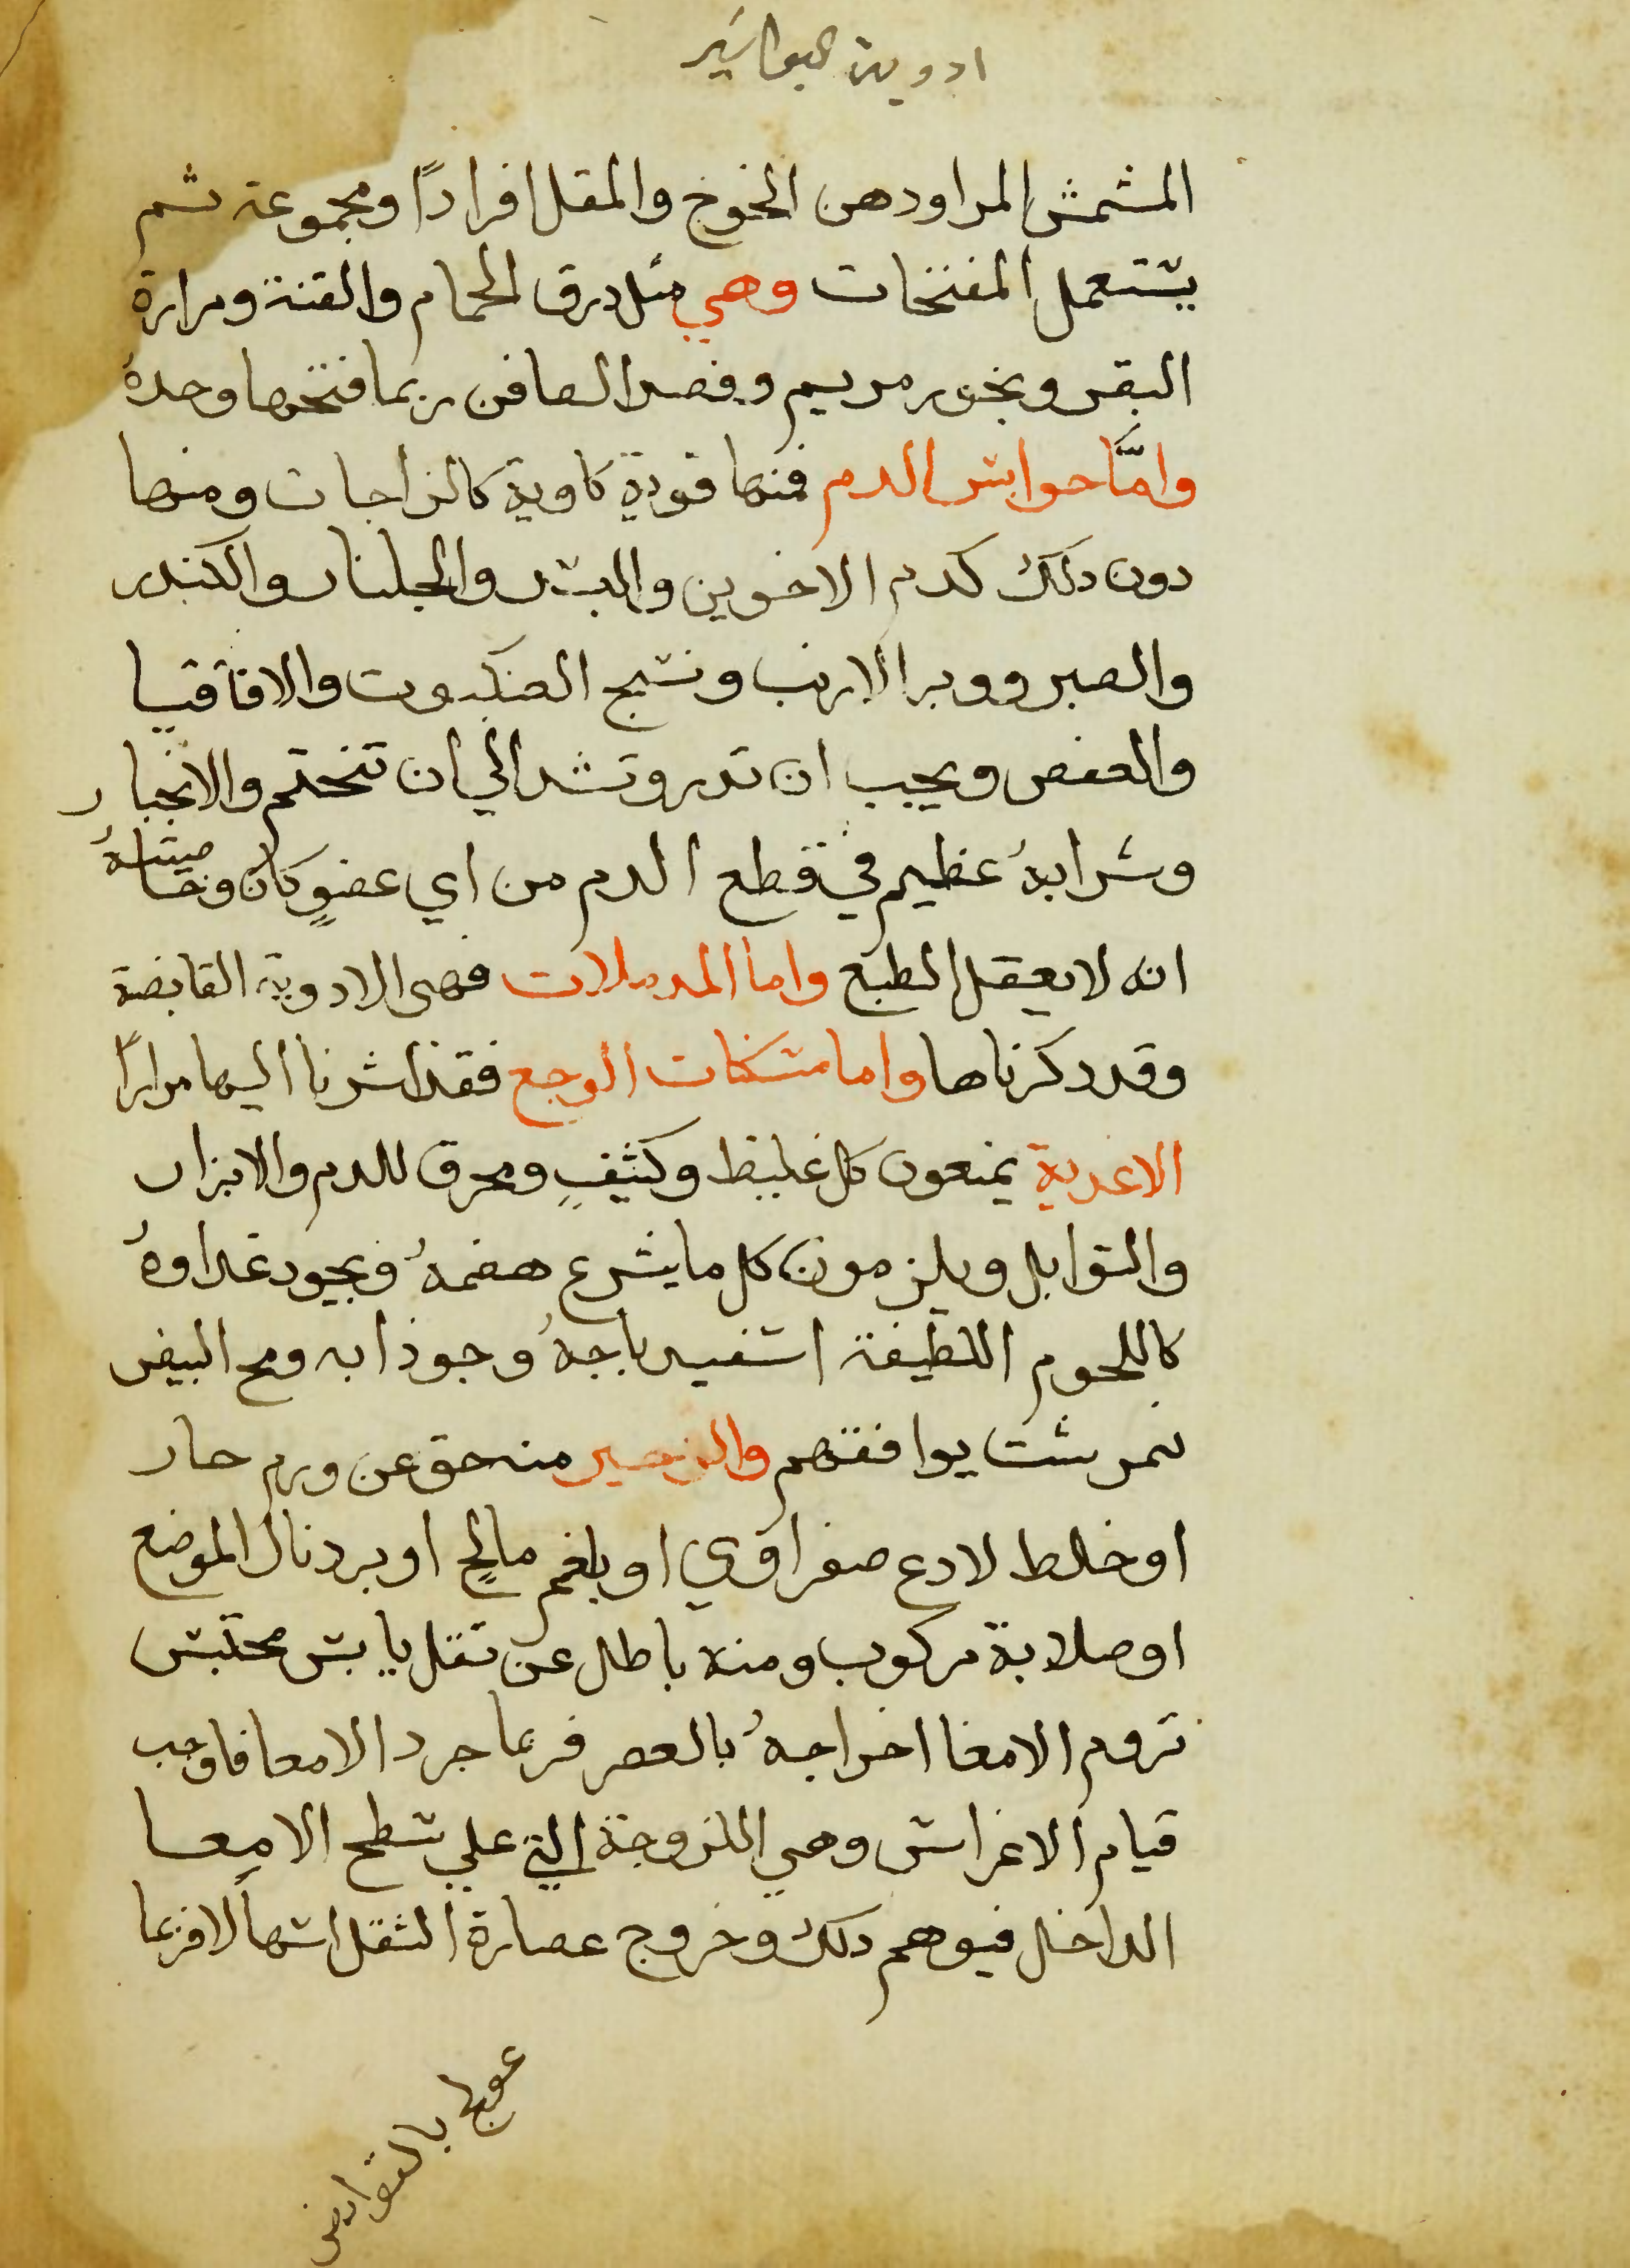 ادوية البواسير
المشمش المر اودهن الخوخ والمقل افرادًا ومجموعة ثم
يستعمل المفتحات وهي مثل درق الحمام والقنة ومرارة
البقر وبخور مريم وفصد الصافن ربما فتحها وحدهُ
وامَّا حوابس الدم فمنها قوية كاوية كالزاجات ومنها
دون دلك كدم الاخوين والبسد والجلنار والكندر
والصبر ووبر الارنب ونسج العنكبوت والاقاقيا
والعفص ويجب ان تدر وتشد الي ان تختم والانجبار
وشرابهُ عظيم في قطع الدم من اي عضوٍ كان وخاصيتهُ
انه لا يعقل الطبع واما المدملات فهى الادوية القابضة
وقد دكرناها واما مسكنات الوجع فقد اشرنا اليها مرارًا
الاغدية يمنعون كل غليظ وكثيفٍ ومحرق للدم والابزار
والتوابل ويلزمون كل ما يسرع هضمهُ ويجود غداوهُ
كاللحوم اللطيفة اسفيدباجهُ وجوذابه ومح البيض
نمرشت يوافقهم والزحير منه حق عن ورم حار
او خلط لادع صفراوي او بلغم مالحٍ او برد نال الموضع
او صلابة مركوب ومنه باطل عن ثقل يابس محتبس
تروم الامعا اخراجهُ بالعصر فربما جرد الامعا فاوجب
قيام الاغراس وهي اللزوجة التي علي سطح الامعا
الداخل فيوهم دلك وخروج عصارة الثقل اسهالًا فربما
عولج بالقوابض